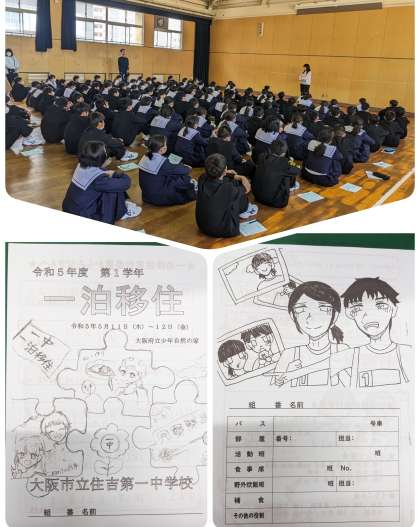 令和5年度 第1学年
一泊移住
令和5年5月11日(木)~12日(金)
大阪府立少年自然の家
一中
一泊移住
大阪市立住吉第一中学校
組 番 名前
組 番 名前
バス 号車
部屋 番号: 担当:
活動班 班
食事席 班 No.
野外炊飯班 班 担当:
補食
その他の役割